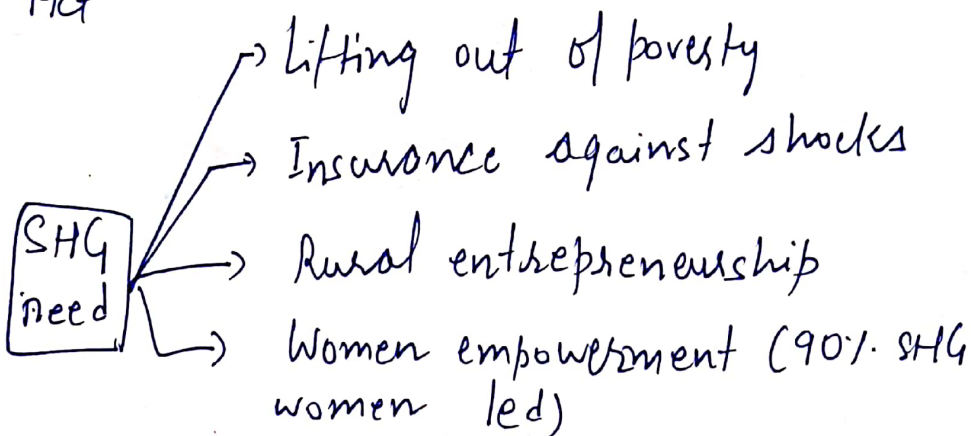 Lifting out of poverty
Insurance against shocks
SHG
need
Rural entrepreneurship
Women empowerment (90%. SHG
women led)